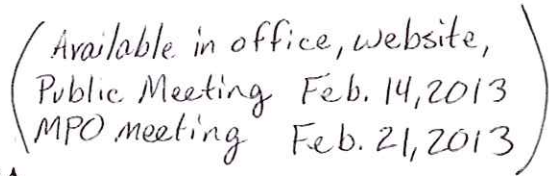 (Available in office, website,
Public Meeting Feb. 14, 2013
MPO meeting Feb. 21, 2013)